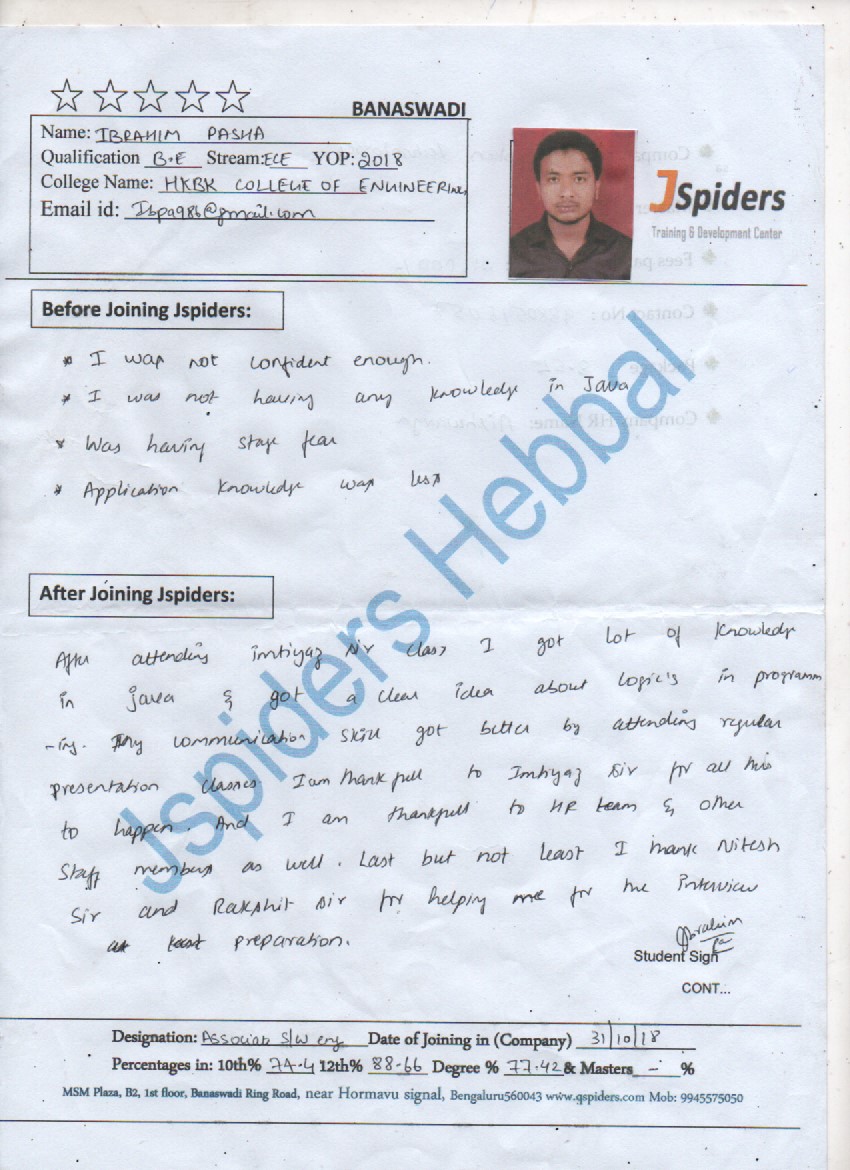 BANASWADI
Name: IBRAHIM PASHA
Qualification B.E Stream: ECE YOP: 2018
College Name: HKBK COLLEGE OF ENGINEERING
Email id: Ibpa986@gmail.com
JSpiders
Training & Development Center
Before Joining Jspiders:
* I was not confident enough.
* I was not having any knowledge in Java
* Was having stage fear
* Application knowledge was less
After Joining Jspiders:
After attending imtiyaz sir class I got lot of knowledge
in java & got a clear idea about logic's in programm
-ing. My communication skill got better by attending regular
presentation classes I am thankfull to Imtiyaz sir for all this
to happen. And I am thankfull to HR team & other
Staff members as well. Last but not least I thank Nitesh
Sir and Rakshit sir for helping me for the Interview
preparation.
Ibrahim
Student Sign
CONT...
Designation: Associate S/W eng Date of Joining in (Company) 31/10/18
Percentages in: 10th% 74.4 12th% 88.66 Degree % 77.42 & Masters - %
MSM Plaza, B2, 1st floor, Banaswadi Ring Road, near Hormavu signal, Bengaluru560043 www.qspiders.com Mob: 9945575050
Jspiders Hebbal